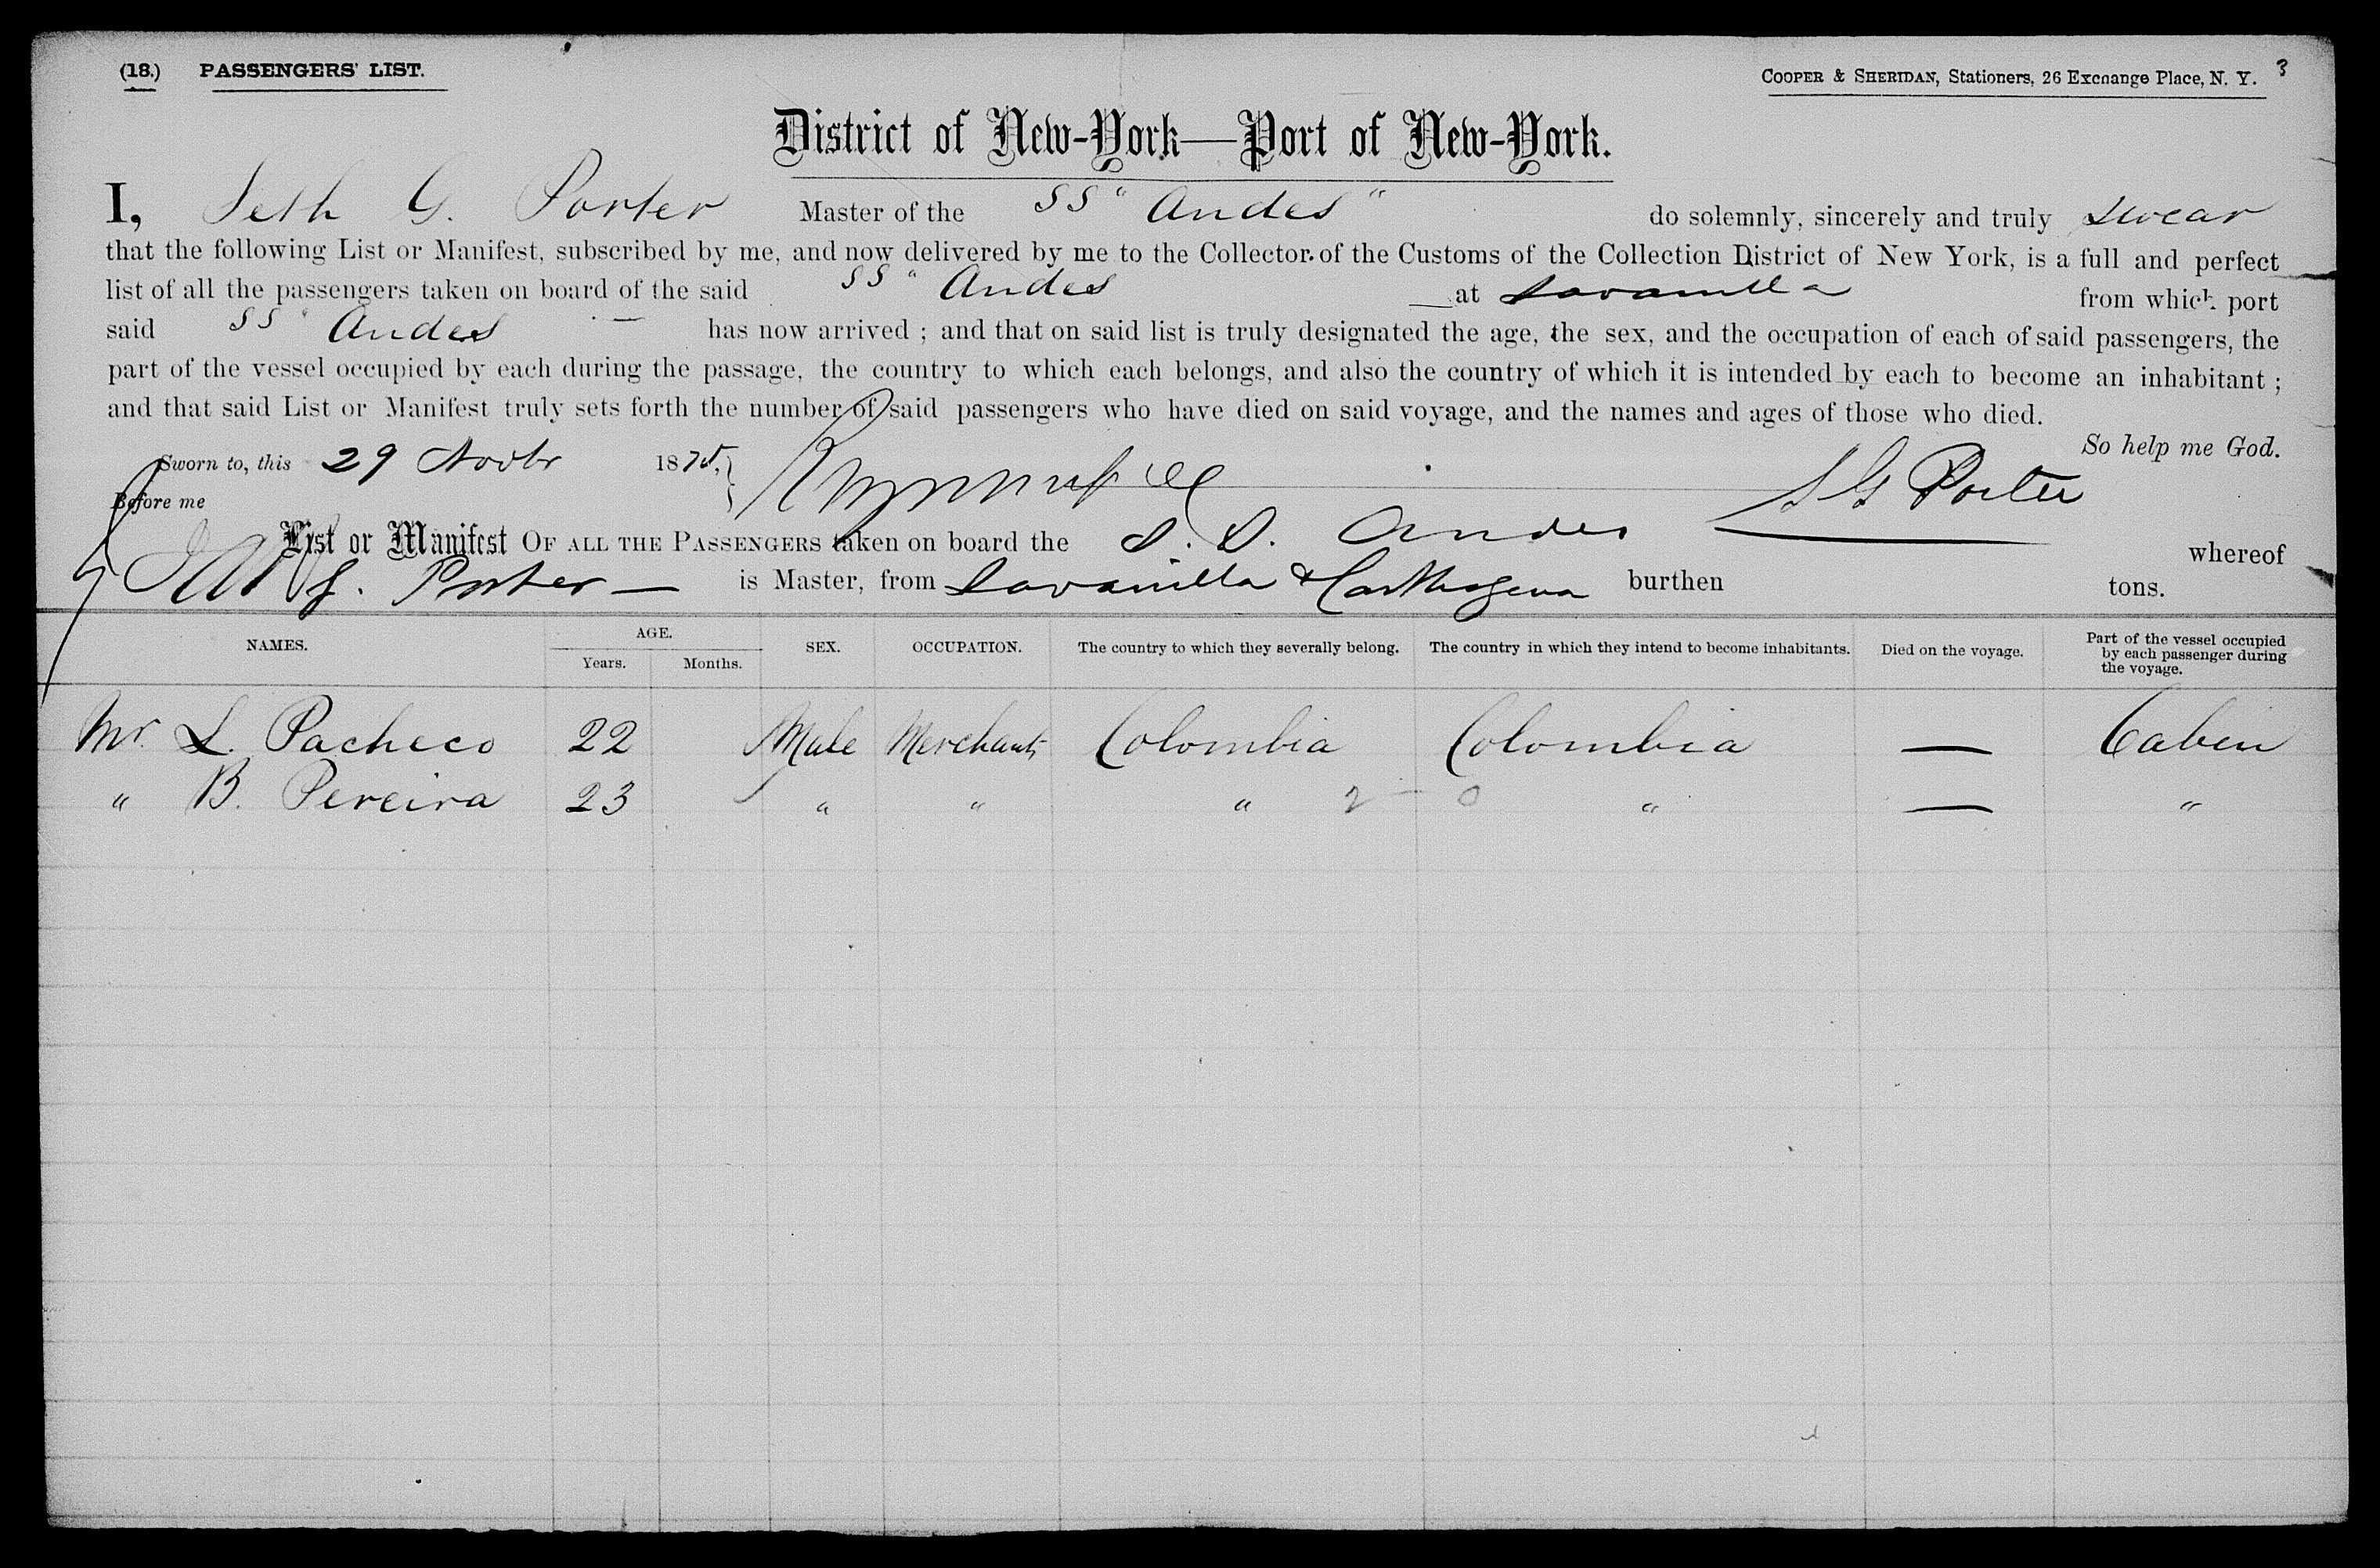 (18.) PASSENGERS' LIST.
COOPER & SHERIDAN, Stationers, 26 Exchange Place, N. Y. 3
District of New-York—Port of New-York.
I, Seth G. Porter Master of the SS "Andes" do solemnly, sincerely and truly swear
that the following List or Manifest, subscribed by me, and now delivered by me to the Collector of the Customs of the Collection District of New York, is a full and perfect
list of all the passengers taken on board of the said SS "Andes at Savanilla from which port
said SS "Andes has now arrived ; and that on said list is truly designated the age, the sex, and the occupation of each of said passengers, the
part of the vessel occupied by each during the passage, the country to which each belongs, and also the country of which it is intended by each to become an inhabitant ;
and that said List or Manifest truly sets forth the number of said passengers who have died on said voyage, and the names and ages of those who died.
So help me God.
Sworn to, this 29 Novbr 1875,
S G Porter
Before me
List or Manifest OF ALL THE PASSENGERS taken on board the S. S. Andes whereof
G. Porter — is Master, from Savanilla & Carthagena burthen tons.
NAMES. AGE. Years. Months. SEX. OCCUPATION. The country to which they severally belong. The country in which they intend to become inhabitants. Died on the voyage. Part of the vessel occupied by each passenger during the voyage.
Mr. L. Pacheco 22 Male Merchant Colombia Colombia — Cabin
" B. Pereira 23 " " " 2 — 0 " — "